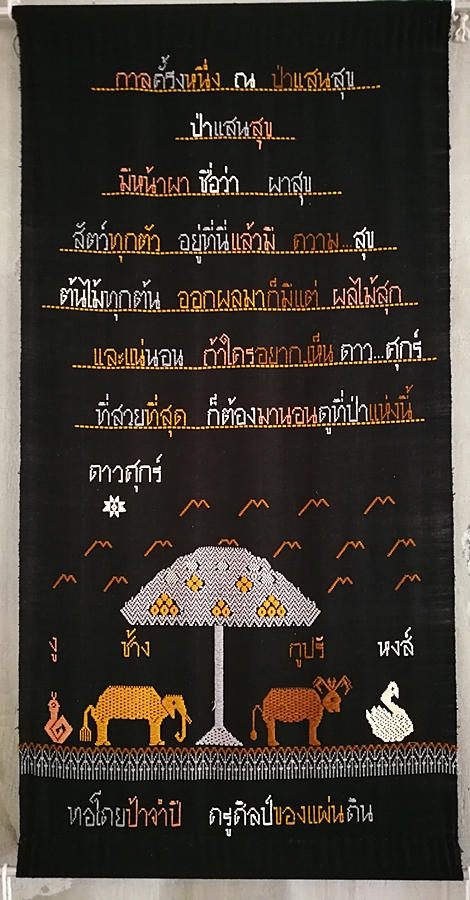 กาลครั้งหนึ่ง ณ ป่าแสนสุข
ป่าแสนสุข
มีหน้าผา ชื่อว่า ผาสุข
สัตว์ทุกตัว อยู่ที่นี่แล้วมี ความ...สุข
ต้นไม้ทุกต้น ออกผลมาก็มีแต่ ผลไม้สุก
และแน่นอน ถ้าใครอยาก..เห็น ดาว...ศุกร์
ที่สวยที่สุด ก็ต้องมานอนดูที่ป่าแห่งนี้
ดาวศุกร์
งู ช้าง กูปรี หงส์
ทอโดยป้าจำปี ครูศิลป์ของแผ่นดิน